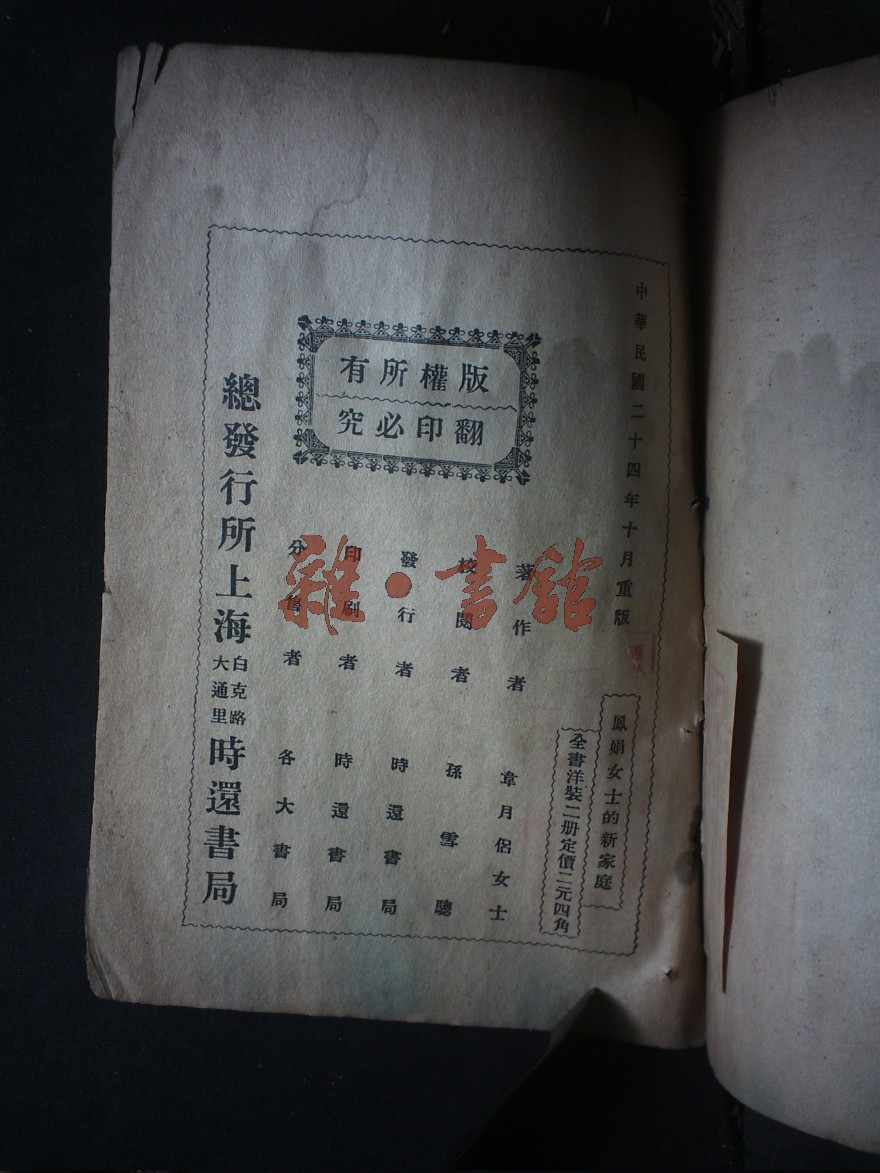 中華民國二十四年十月重版
鳳娟女士的新家庭
全書洋裝二册定價二元四角
版權所有
翻印必究
著作者 章月侶女士
校閱者 孫雪驄
發行者 時還書局
印刷者 時還書局
分售者 各大書局
總發行所上海白克路大通里時還書局
雜·書館